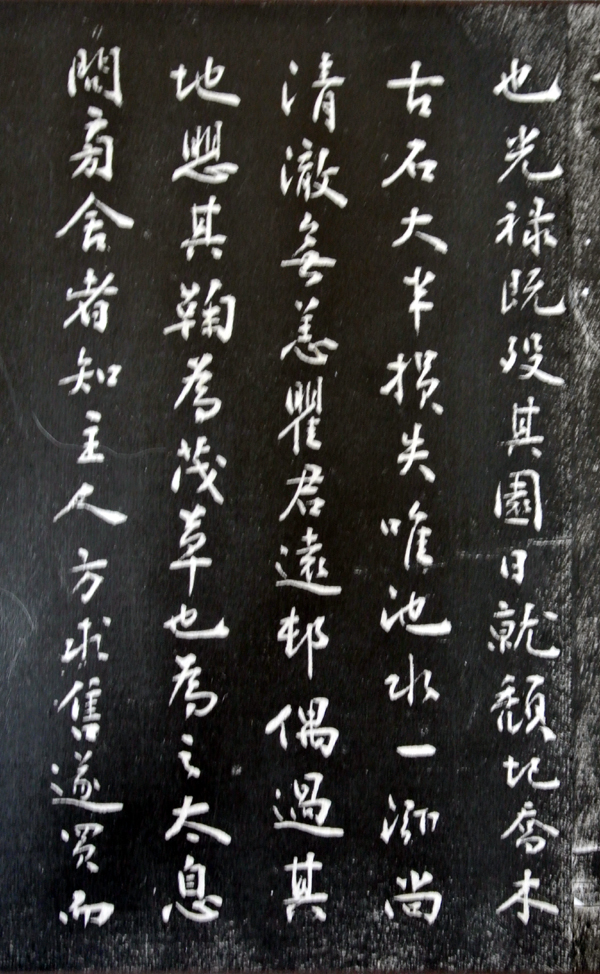 也光禄既歿其園日就頹圮喬木
古石大半損失唯池水一泓尚
清澈無恙瞿君遠邨偶過其
地愳其鞠為茂草也為之太息
問旁舍者知主人方求售遂買而